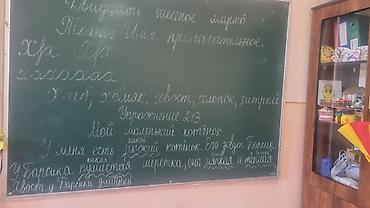 Двадцать шестое марта
Тема: Имя прилагательное.
Хх Хх
ххххххх
Хлеб, хомяк, хвост, хлопок, хитрый
Упражнение 213
Мой маленький котёнок.
какой
У меня есть рыжий котёнок. Его зовут Барсик.
какая
У Барсика пушистая шёрстка, она мягкая и тёплая
Хвост у Барсика длинный